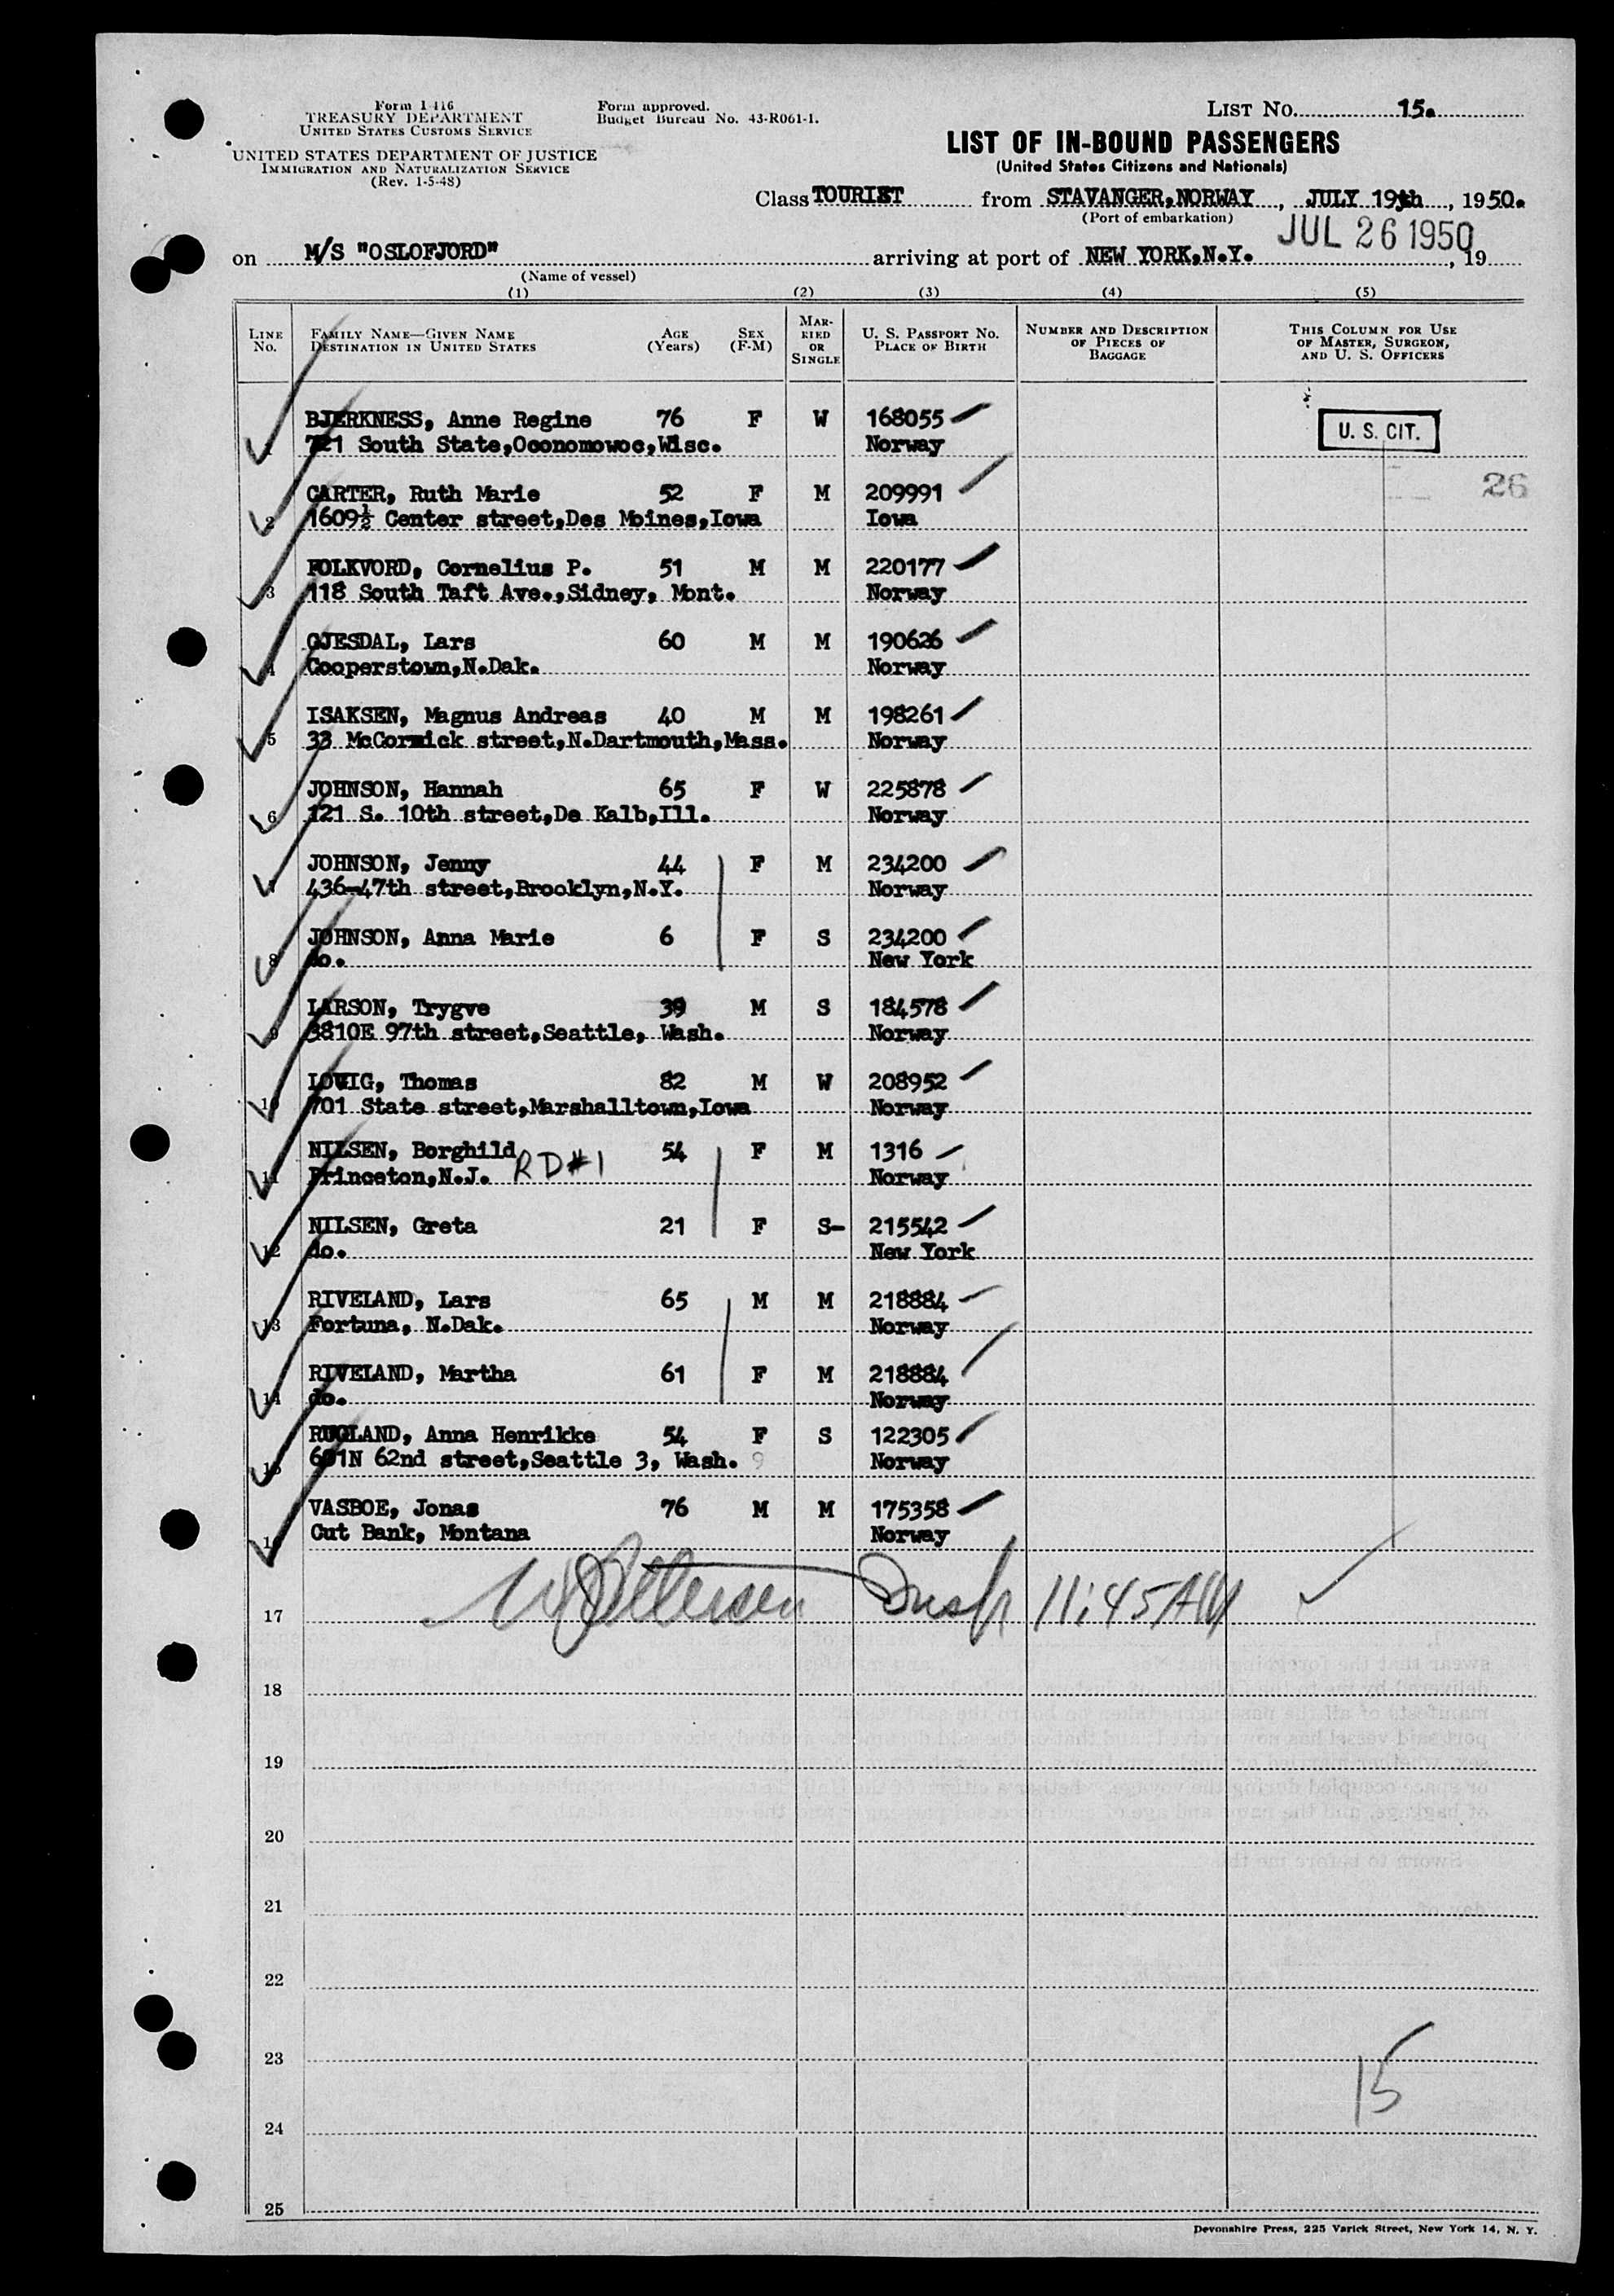 Form I 416
TREASURY DEPARTMENT
UNITED STATES CUSTOMS SERVICE
UNITED STATES DEPARTMENT OF JUSTICE
IMMIGRATION AND NATURALIZATION SERVICE
(Rev. 1-5-48)
Form approved.
Budget Bureau No. 43-R061-1.
LIST NO. 15.
LIST OF IN-BOUND PASSENGERS
(United States Citizens and Nationals)
Class TOURIST from STAVANGER,NORWAY, JULY 19th, 1950.
(Port of embarkation)
JUL 26 1950
on M/S "OSLOFJORD" arriving at port of NEW YORK,N.Y. , 19
(Name of vessel)
(1) (2) (3) (4) (5)
LINE NO. FAMILY NAME—GIVEN NAME DESTINATION IN UNITED STATES AGE (Years) SEX (F-M) MARRIED OR SINGLE U. S. PASSPORT NO. PLACE OF BIRTH NUMBER AND DESCRIPTION OF PIECES OF BAGGAGE THIS COLUMN FOR USE OF MASTER, SURGEON, AND U. S. OFFICERS
BJERKNESS, Anne Regine 76 F W 168055
721 South State,Oconomowoc,Wisc. Norway
U. S. CIT.
CARTER, Ruth Marie 52 F M 209991 26
2 1609½ Center street,Des Moines,Iowa Iowa
FOLKVORD, Cornelius P. 51 M M 220177
3 118 South Taft Ave.,Sidney, Mont. Norway
GJESDAL, Lars 60 M M 190626
4 Cooperstown,N.Dak. Norway
ISAKSEN, Magnus Andreas 40 M M 198261
5 33 McCormick street,N.Dartmouth,Mass. Norway
JOHNSON, Hannah 65 F W 225878
6 121 S. 10th street,De Kalb,Ill. Norway
JOHNSON, Jenny 44 F M 234200
436-47th street,Brooklyn,N.Y. Norway
JOHNSON, Anna Marie 6 F S 234200
8 do. New York
LARSON, Trygve 39 M S 184578
9 3810E 97th street,Seattle, Wash. Norway
LOVIG, Thomas 82 M W 208952
10 701 State street,Marshalltown,Iowa Norway
NILSEN, Borghild 54 F M 1316
11 Princeton,N.J. RD#1 Norway
NILSEN, Greta 21 F S- 215542
12 do. New York
RIVELAND, Lars 65 M M 218884
13 Fortuna, N.Dak. Norway
RIVELAND, Martha 61 F M 218884
14 do. Norway
RUGLAND, Anna Henrikke 54 F S 122305
15 601N 62nd street,Seattle 3, Wash. 9 Norway
VASBOE, Jonas 76 M M 175358
Cut Bank, Montana Norway
17 11:45 AM
18
19
20
21
22
23
15
24
25
Devonshire Press, 225 Varick Street, New York 14, N. Y.